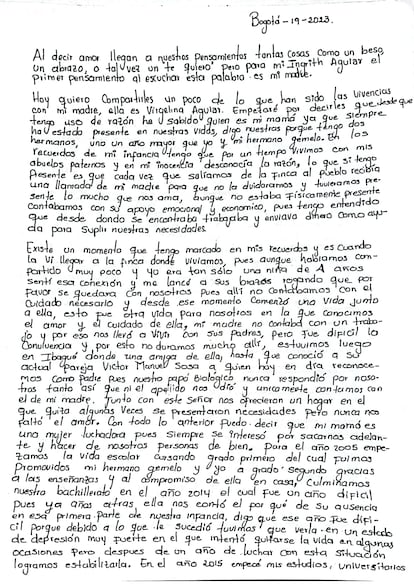 Bogotá - 19 - 2023.
Al decir amor llegan a nuestros pensamientos tantas cosas como un beso,
un abrazo, o tal vez un te quiero pero para mi Ingrith Aguiar el
primer pensamiento al escuchar esta palabra es mi madre.
Hoy quiero compartirles un poco de lo que han sido las vivencias
con mi madre, ella es Virgelina Aguiar. Empezaré por decirles que desde que
tengo uso de razón he sabido quien es mi mamá ya que siempre
ha estado presente en nuestras vidas, digo nuestras porque tengo dos
hermanos, uno un año mayor que yo y mi hermano gemelo. En los
recuerdos de mi infancia tengo que por un tiempo vivimos con mis
abuelos paternos y en mi inocencia desconocía la razón, lo que si tengo
presente es que cada vez que salíamos de la finca al pueblo recibía
una llamada de mi madre para que no la olvidaramos y tuvieramos pre-
sente lo mucho que nos amar, aunque no estaba físicamente presente
contabamos con su apoyo emocional y economico, pues tengo entendido
que desde donde se encontraba trabajaba y enviava dinero como ayu-
da para suplir nuestras necesidades.
Existe un momento que tengo marcado en mis recuerdos y es cuando
la vi llegar a la finca donde vivíamos, pues aunque habíamos com-
partido muy poco y yo era tan sólo una niña de 4 años
sentí esa conexión y me lancé a sus brazos rogando que por
favor se quedara con nosotros pues allí no contabamos con el
cuidado necesario y desde ese momento comenzó una vida junto
a ella, esto fue otra vida para nosotros en la que conocimos
el amor y el cuidado de ella, mi madre no contabá con un traba-
jo y por eso nos llevó a vivir con sus padres, pero fue difícil la
convivencia y por esto no duramos mucho allí, estuvimos luego
en Ibagué donde una amiga de ella, hasta que conoció a su
actual pareja Victor Manuel Sosa a quien hoy en día reconoce-
mos como padre pues nuestro papá biologico nunca respondió por noso-
tros tanto así que ni el apellido nos dio y unicamente contamos con
el de mi madre. Junto con este Señor nos ofrecieron un hogar en el
que quizá algunas veces se presentaron necesidades pero nunca nos
faltó el amor. Con todo lo anterior puedo decir que mi mamá es
una mujer luchadora pues siempre se interesó por sacarnos adelan-
te y hacer de nosotros personas de bien. Para el año 2005 empe-
zamos la vida escolar cursando grado primero del cual fuimos
promovidos mi hermano gemelo y yo a grado segundo gracias
a las enseñanzas y al compromiso de ella en casa, culminamos
nuestro bachillerato en el año 2014 el cual fue un año difícil
pues ya años atras ella nos contó el por qué de su ausencia
en esa primera parte de nuestra infancia, digo que ese año fue difi-
cil porque debido a lo que le sucedió tuvimos que verla en un estado
de depresión muy fuerte en el que intentó quitarse la vida en algunas
ocasiones pero despues de un año de luchar con esta situación
logramos estabilizarla. En el año 2015 empecé mis estudios universitarios